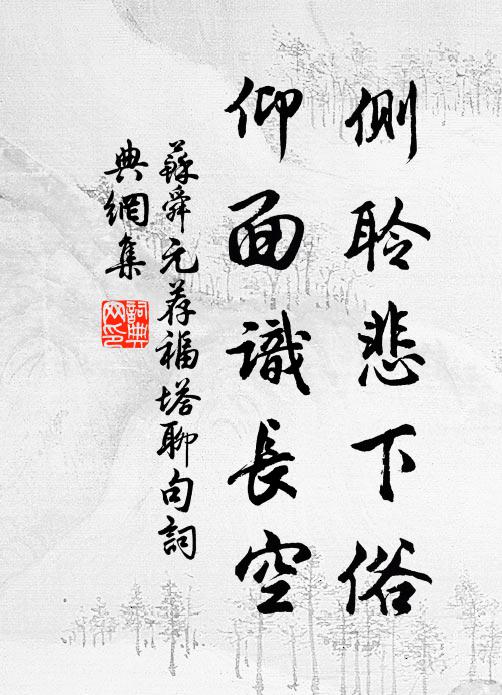 側聆悲下俗
仰面識長空
蘇舜元荐福塔聊句詞
典網集
詞典网印